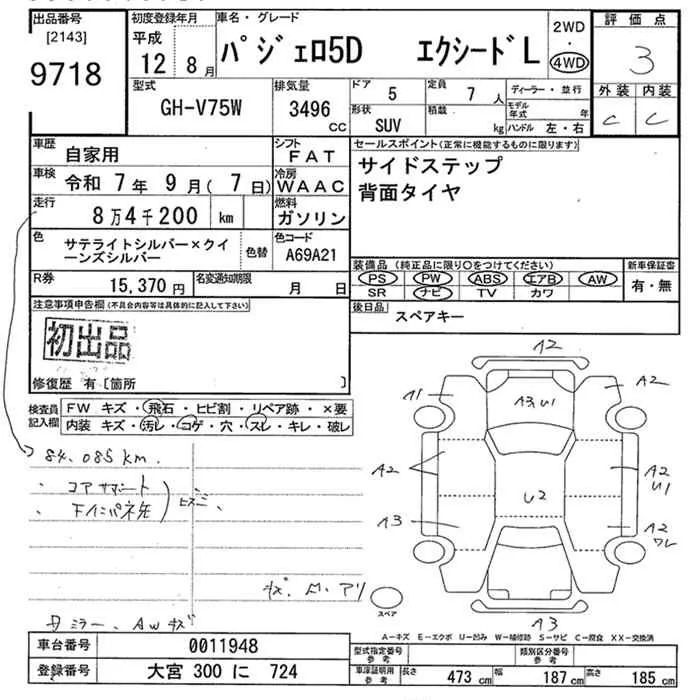 出品番号
[2143]
9718
初度登録年月
平成
12 年 8月
車名・グレード
パジェロ5D エクシードL
2WD
・
4WD
評価点
3
外装 内装
C C
型式
GH-V75W
排気量
3496
CC
ドア
5
定員
7 人
形状
SUV
積載
kg
ディーラー・並行
モデル年式 年
ハンドル 左・右
車歴
自家用
シフト
FAT
車検
令和 7年 9月( 7日)
冷房
WAAC
走行
8万4千200 km
燃料
ガソリン
色
サテライトシルバー×クイーンズシルバー
色替
色コード
A69A21
R券
15,370円
名変通知期限
月 日
セールスポイント(正常に機能するものに限ります)
サイドステップ
背面タイヤ
装備品(純正品に限り○をつけてください)
PS PW ABS エアB AW
SR ナビ TV カワ
新車保証書
有・無
後日品
スペアキー
注意事項申告欄(不具合内容等は具体的に記入して下さい)
初出品
修復歴 有〔箇所 〕
検査員記入欄
FW キズ・飛石・ヒビ割・リペア跡・×要
内装 キズ・汚レ・コゲ・穴・スレ・キレ・破レ
84,085km.
・コアサポート
・下
キズ. M. アリ
ミラー、AWキズ
A2
A1
A3 U1
A2
A2
U2
A2
U1
A3
A2
ワレ
A3
スペア
A-キズ E-エクボ U-凹み W-補修跡 S-サビ C-腐食 XX-交換済
車台番号
0011948
登録番号
大宮 300 に 724
型式指定番号
参考
類別区分番号
参考
車庫証明用
参考
長さ 473 cm 幅 187 cm 高さ 185 cm